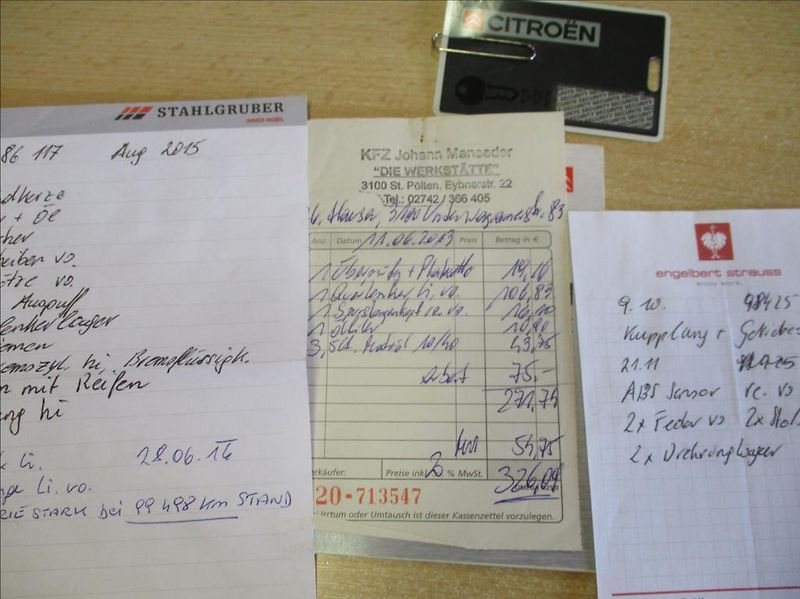 CITROËN
STAHLGRUBER
86 117 Aug 2015
dkerze
+ Öl
cher
eiben vo.
ätze vo.
Auspuff
lenkerlager
emen
emszyl. hi, Bremsflüssigk.
n mit Reifen
ung hi
li. 28.06.16
nge Li. vo.
RIE STARK bei 99498 Km STAND
KFZ Johann Manseder
"DIE WERKSTÄTTE"
3100 St. Pölten, Eybnerstr. 22
Tel.: 02742 / 366 405
3100 83
Anz. Datum 11.06.2013 Preis Betrag in €
1 19,10
1 Querlenker li. vo. 106,83
1 re. vo.
1 Ölfilter
3,5 10/40 43,75
Arbeit 75.-
271,74
Mwst 54,75
erkäufer: Preise inkl. 20 % MwSt.
326,09
20-713547
Irrtum oder Umtausch ist dieser Kassenzettel vorzulegen.
engelbert strauss
enjoy work.
9.10. 98425
Kupplung + Getriebe
21.11
ABS Sensor re. vo
2x Feder vo 2x
2x Drehrohrlager